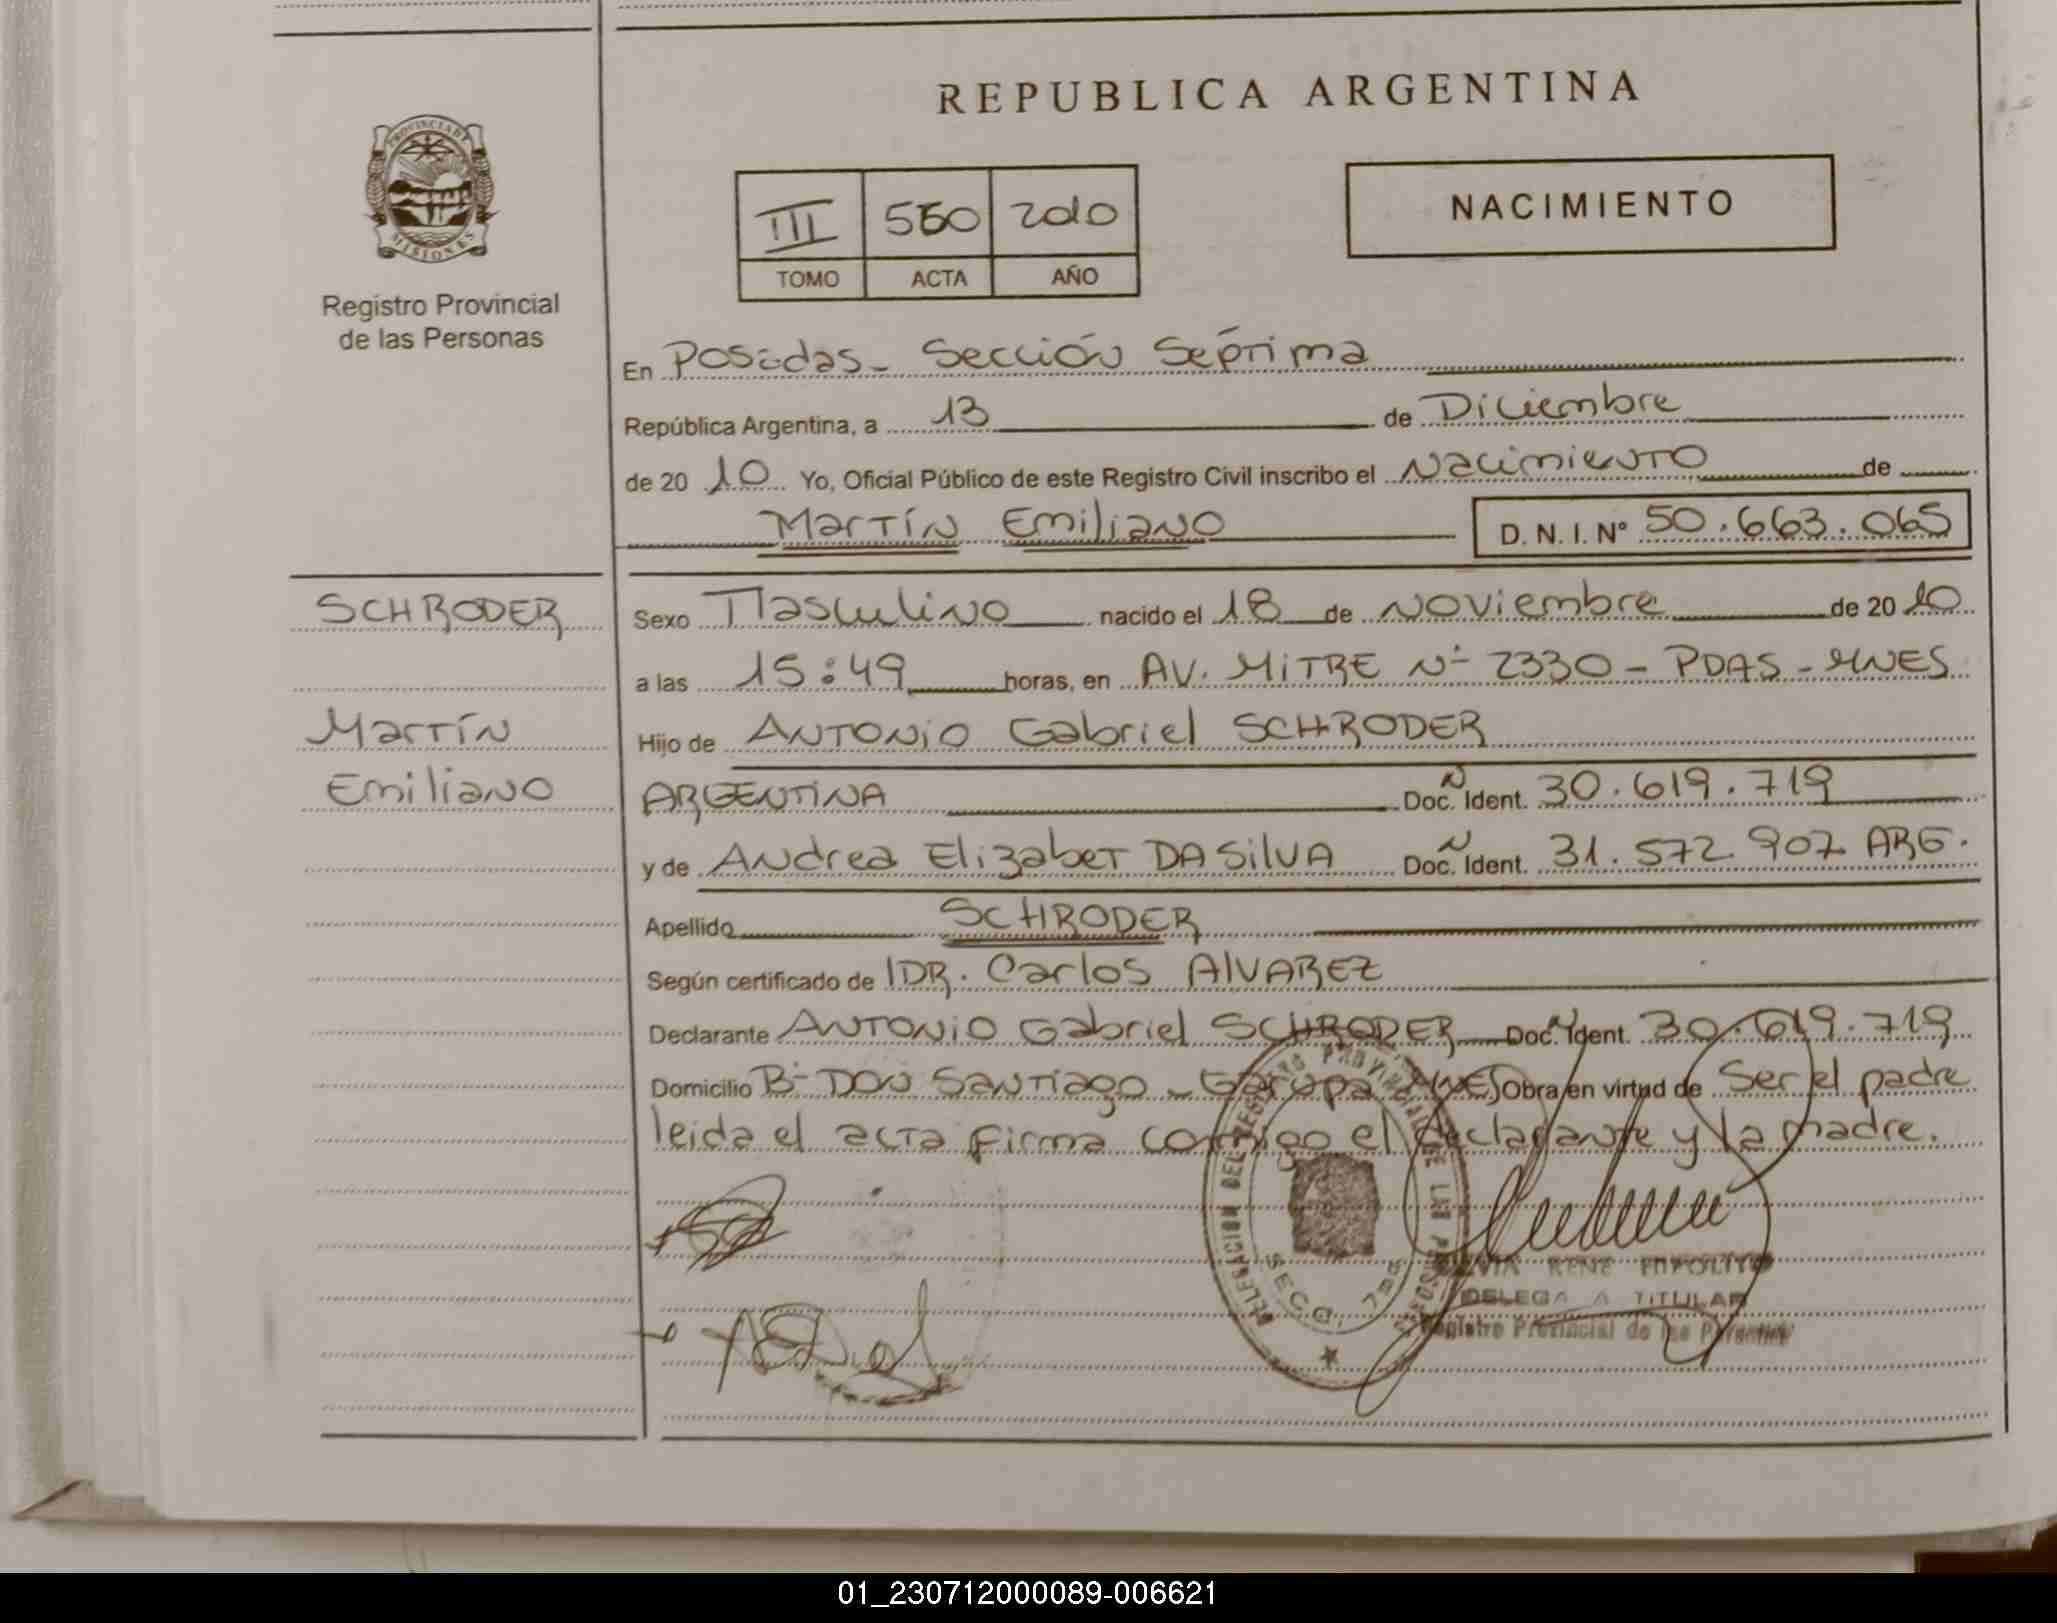 REPUBLICA ARGENTINA
PROVINCIA DE
MISIONES
Registro Provincial
de las Personas
III 550 2010
TOMO ACTA AÑO
NACIMIENTO
En Posadas - Sección Séptima
República Argentina, a 13 de Diciembre
de 2010 Yo, Oficial Público de este Registro Civil inscribo el Nacimiento de
Martín Emiliano D. N. I. N° 50.663.065
SCHRODER
Martín
Emiliano
Sexo Masculino nacido el 18 de Noviembre de 2010
a las 15:49 horas, en AV. MITRE Nº 2330 - PDAS - MNES
Hijo de ANTONIO Gabriel SCHRODER
ARGENTINA Doc. Ident. 30.619.719
y de Andrea Elizabet DA SilVA Doc. Ident. 31.572.907 ARG.
Apellido SCHRODER
Según certificado de DR. Carlos AlVAREZ
Declarante ANTONIO Gabriel SCHRODER Doc. Ident. 30.619.719
Domicilio Bº DON Santiago - Garupa MNES Obra en virtud de Ser el padre
leida el acta firma conmigo el declarante y la madre.
DELEGACION DEL REGISTRO PROVINCIAL DE LAS PERSONAS
SECC. 7ma
RENE HIPOLITO
DELEGADA TITULAR
Registro Provincial de las Personas
01_230712000089-006621